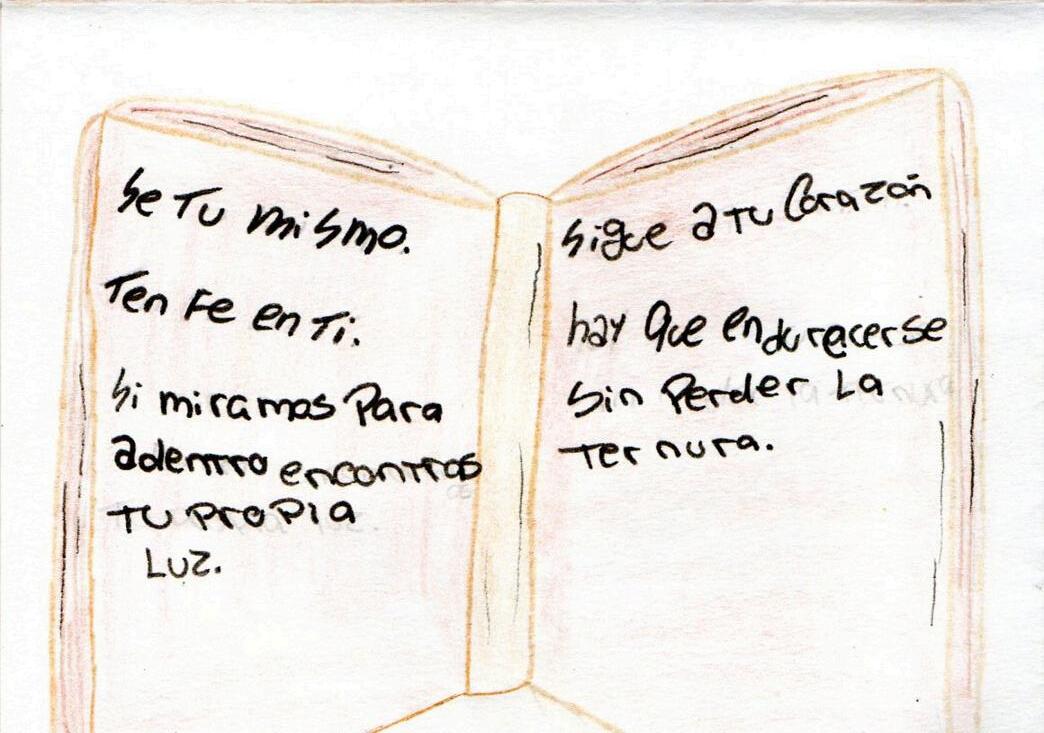 Se Tu mismo.
Ten Fe en Ti.
Si miramos Para
adentro encontras
TU PROPIA
LUZ.
Sigue a tu Corazón
hay Que endurecerse
Sin Perder La
Ternura.